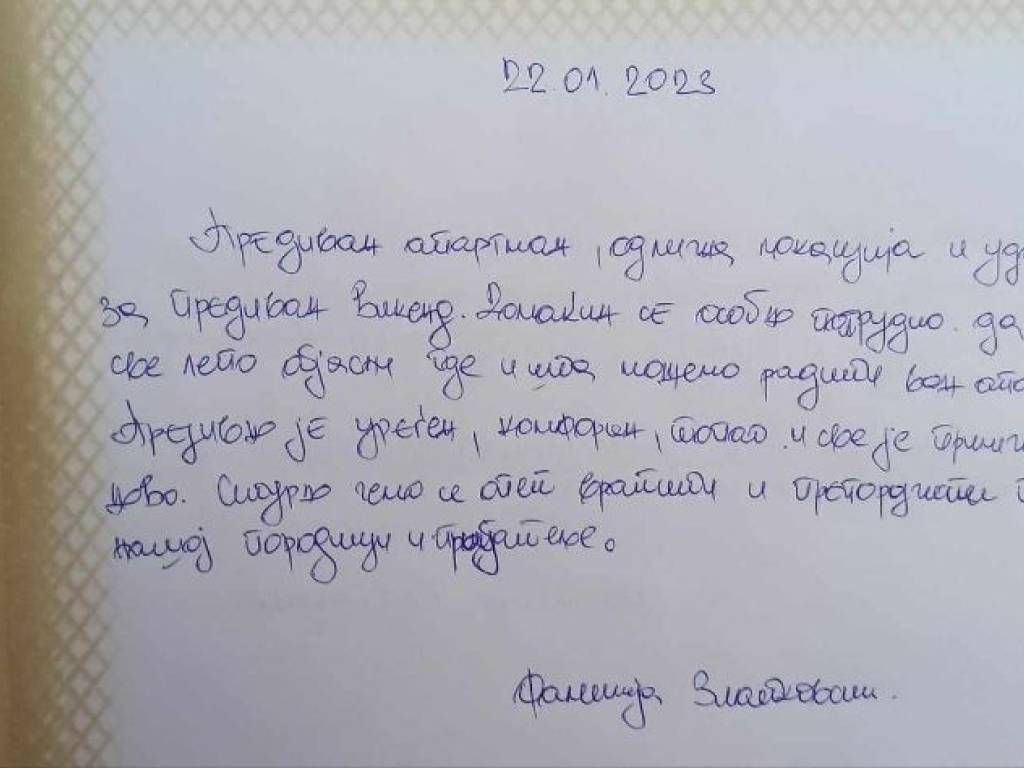 22.01.2023
Предиван апартман, одлична локација и уд
за предиван викенд. Домаћин се особно потрудио да
све лепо објасни где и шта можемо радити ван апа
Предивно је уређен, комфоран, топао и све је
ново. Сигурно ћемо се опет вратити и
нашој породици и пријатеље.
Фамилија Златковић.